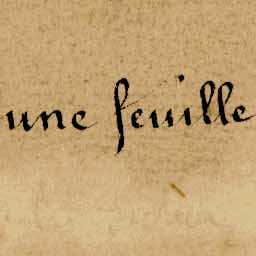 une feuille